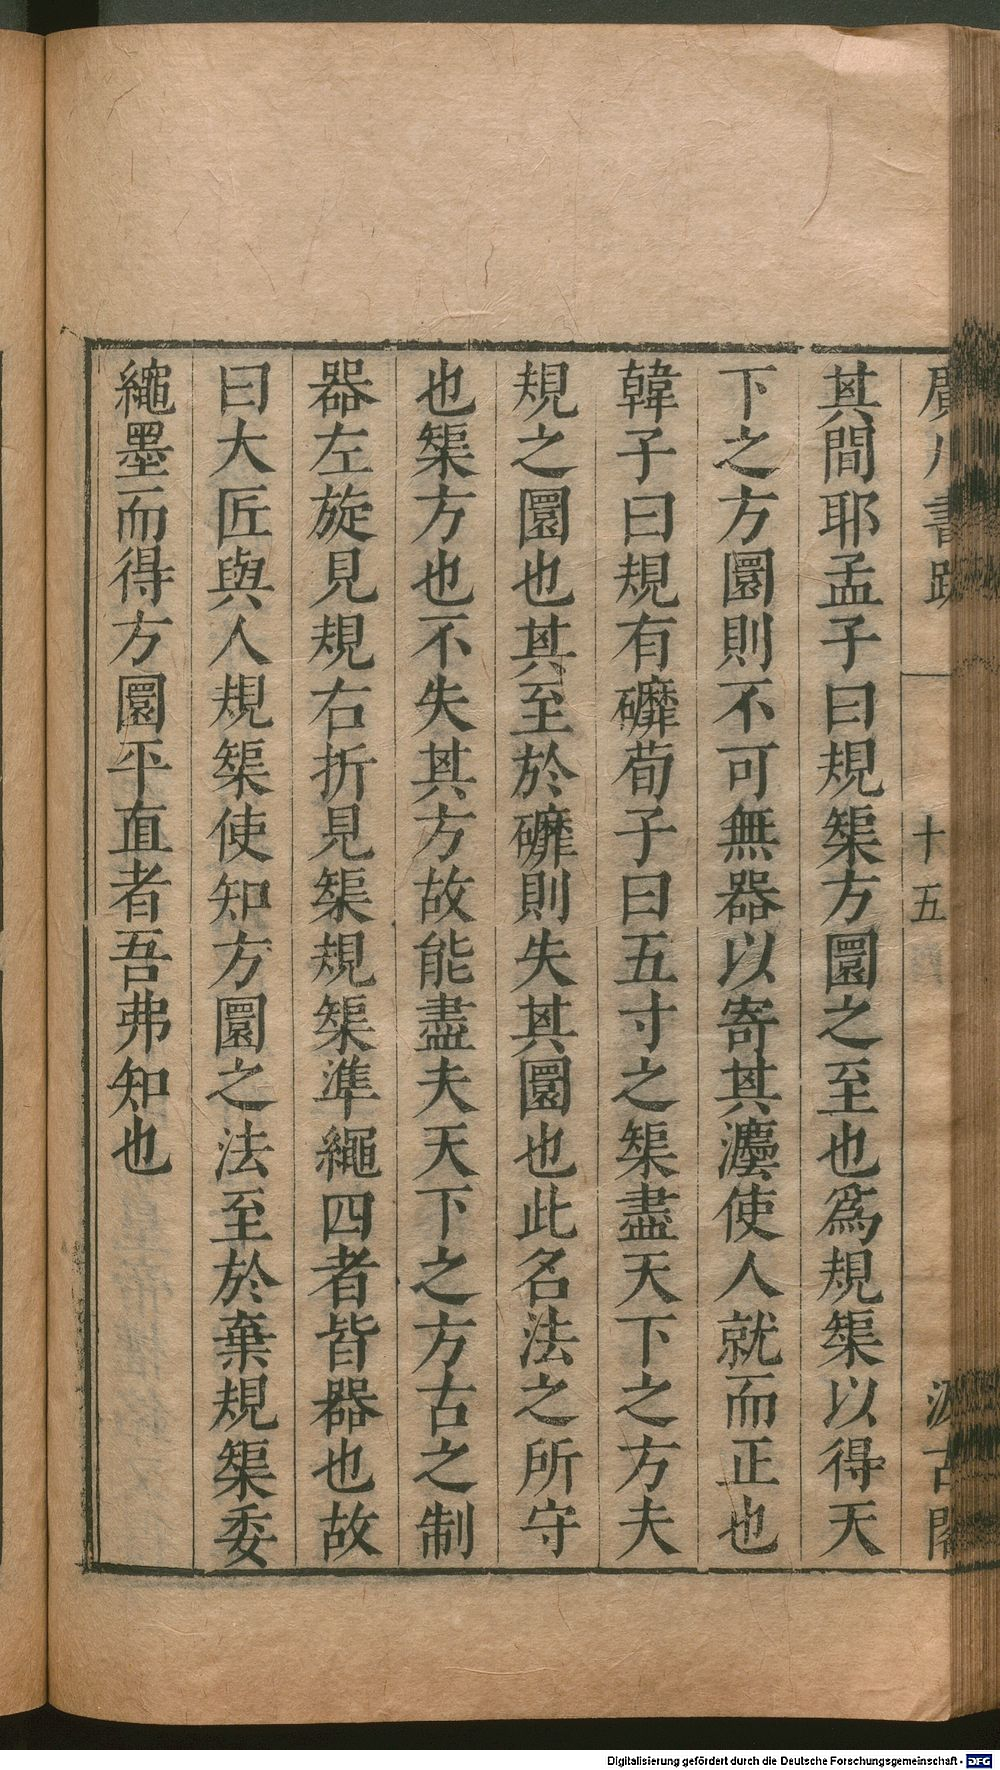 廣川書跋
十五
汲古閣
其間耶孟子曰規榘方圜之至也爲規榘以得天
下之方圜則不可無器以寄其灋使人就而正也
韓子曰規有礳荀子曰五寸之榘盡天下之方夫
規之圜也其至於礳則失其圜也此名法之所守
也榘方也不失其方故能盡夫天下之方古之制
器左旋見規右折見榘規榘準繩四者皆器也故
曰大匠與人規榘使知方圜之法至於棄規榘委
繩墨而得方圜平直者吾弗知也
Digitalisierung gefördert durch die Deutsche Forschungsgemeinschaft - DFG